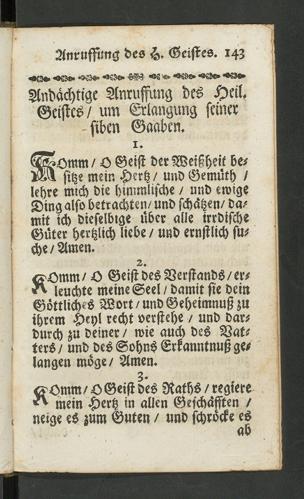 Anruffung des H. Geistes. 143
Andächtige Anruffung des Heil.
Geistes / um Erlangung seiner
siben Gaaben.
1.
Komm / O Geist der Weißheit be-
sitze mein Hertz / und Gemüth /
lehre mich die himmlische / und ewige
Ding also betrachten / und schätzen / da-
mit ich dieselbige über alle irrdische
Güter hertzlich liebe / und ernstlich su-
che / Amen.
2.
Komm / O Geist des Verstands / er-
leuchte meine Seel / damit sie dein
Göttliches Wort / und Geheimnuß zu
ihrem Heyl recht verstehe / und dar-
durch zu deiner / wie auch des Vat-
ters / und des Sohns Erkanntnuß ge-
langen möge / Amen.
3.
Komm / O Geist des Raths / regiere
mein Hertz in allen Geschäfften /
neige es zum Guten / und schröcke es
ab